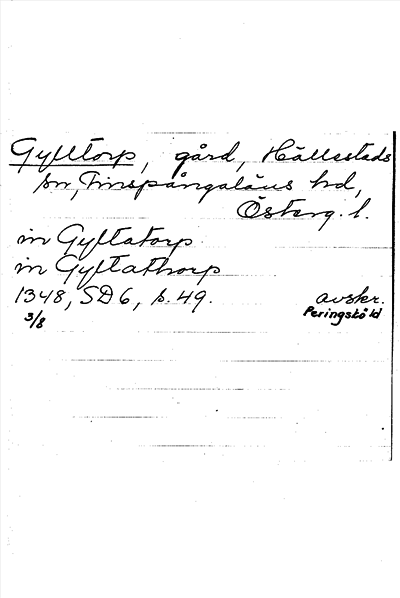 Gylltorp, gård, Hällestads
sn, Finspångaläns hd,
Österg. l.
in Gyltatorp
in Gyltathorp
1348, SD 6, s. 49. avskr.
3/8 Peringsköld